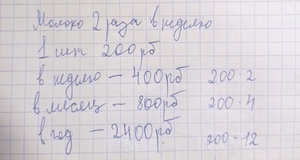 Молоко 2 раза в неделю
1 шт 200 рб
в неделю – 400 рб 200·2
в месяц – 800 рб 200·4
в год – 2400 рб. 200·12